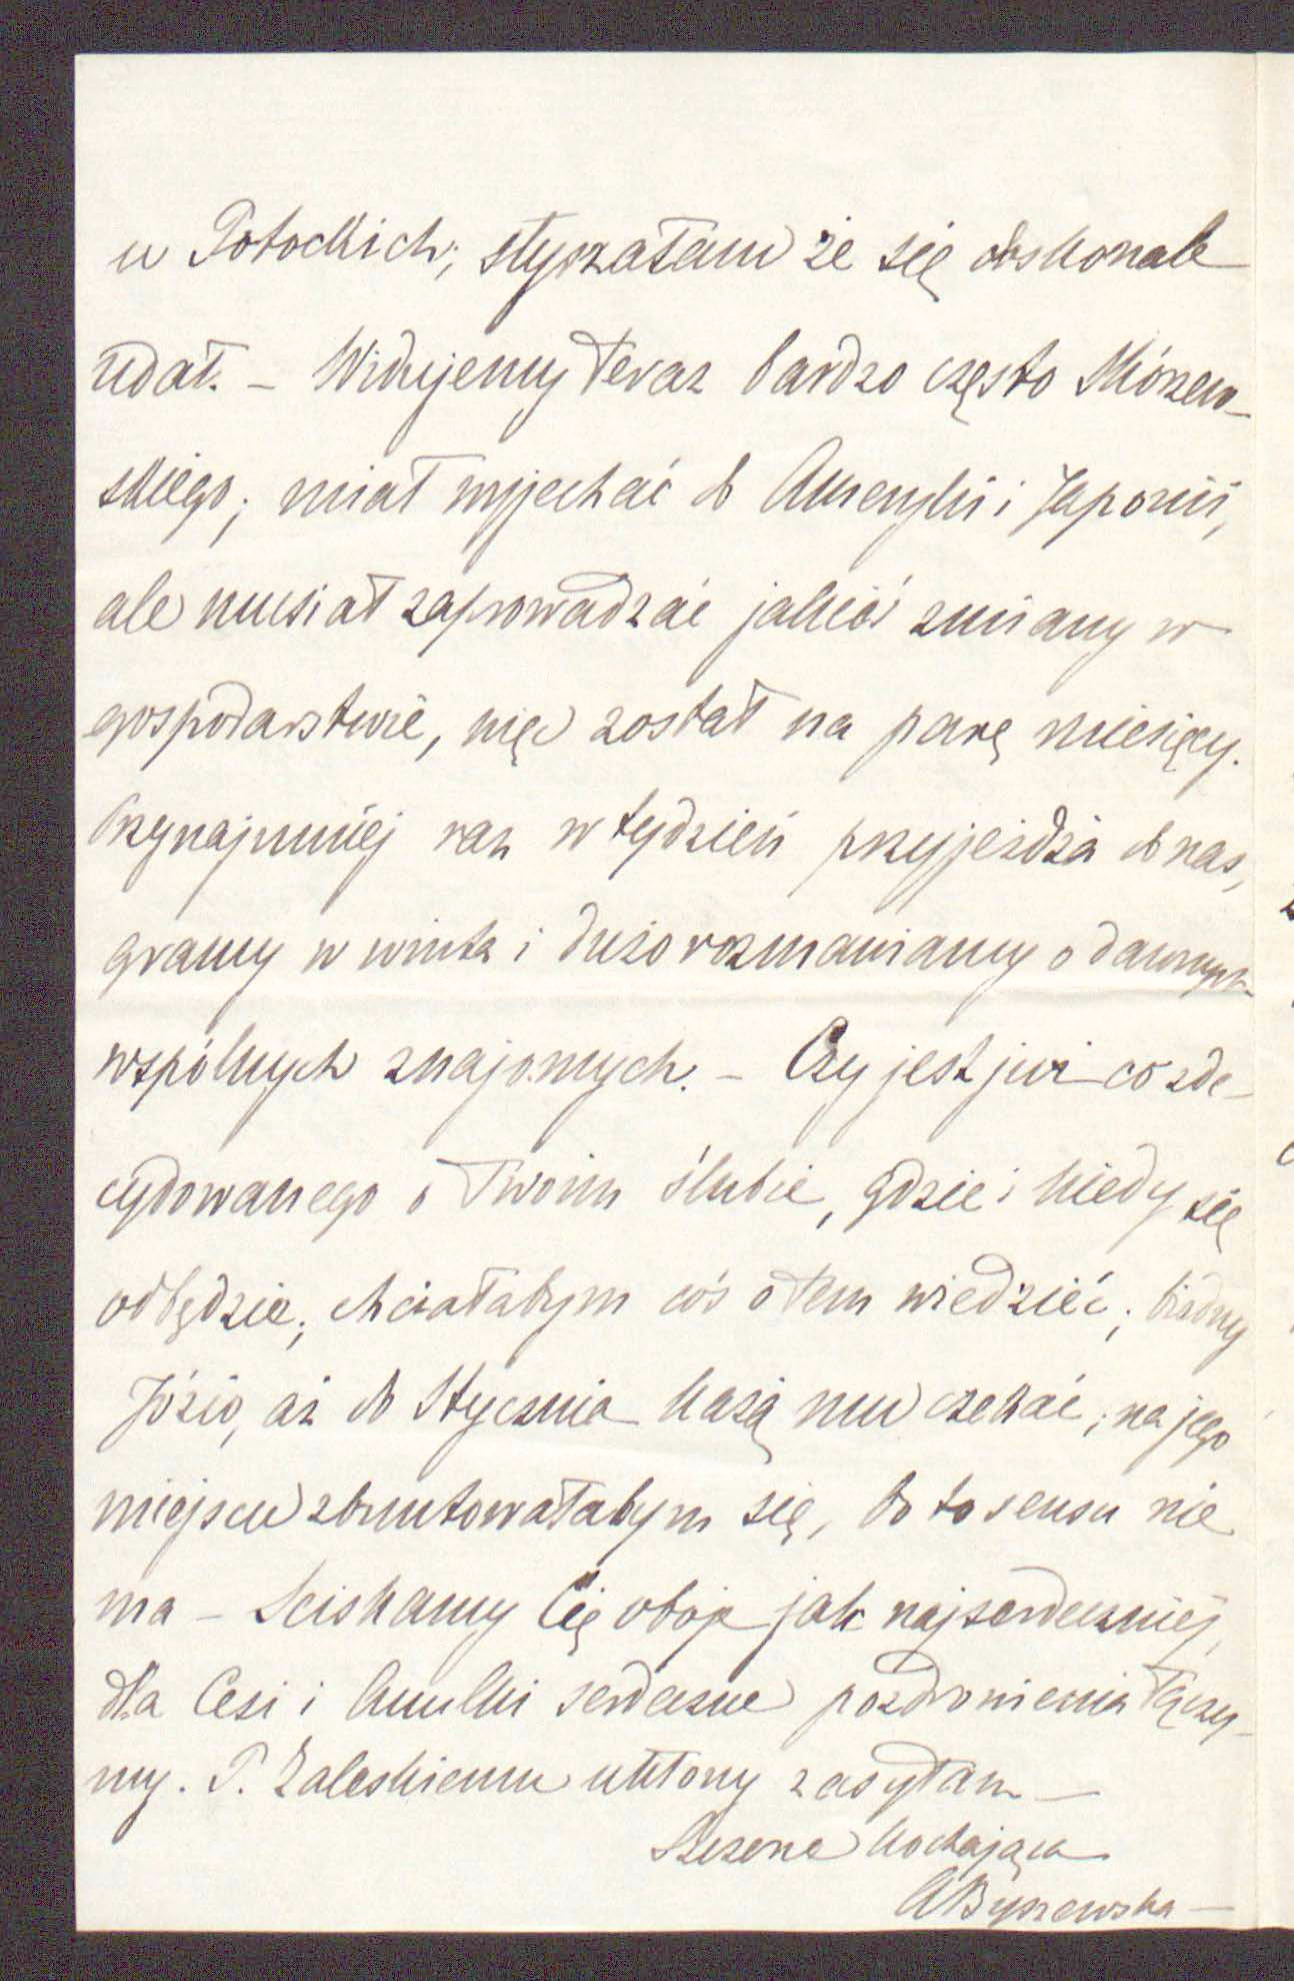 u Potockich; słyszałam że się doskonale
udał. – Widujemy teraz bardzo często Skórzew-
skiego; miał wyjechać do Ameryki i Japonii,
ale musiał zaprowadzać jakieś zmiany w
gospodarstwie, więc został na parę miesięcy.
Przynajmniej raz w tydzień przyjeżdża do nas,
gramy w winta i dużo rozmawiamy o dawnych
wspólnych znajomych. – Czy jest już co zde-
cydowanego o Twoim ślubie, gdzie i kiedy się
odbędzie; chciałabym coś o tem wiedzieć; biedny
Józio, aż do Stycznia każą mu czekać; na jego
miejscu zbuntowałabym się, bo to sensu nie
ma – Sciskamy Cię oboje jak najserdeczniej,
dla Cesi i Anulki serdeczne pozdrowienia łączy-
my. P. Zaleskiemu ukłony zasyłam –
Szczerze kochająca
AByszewska –